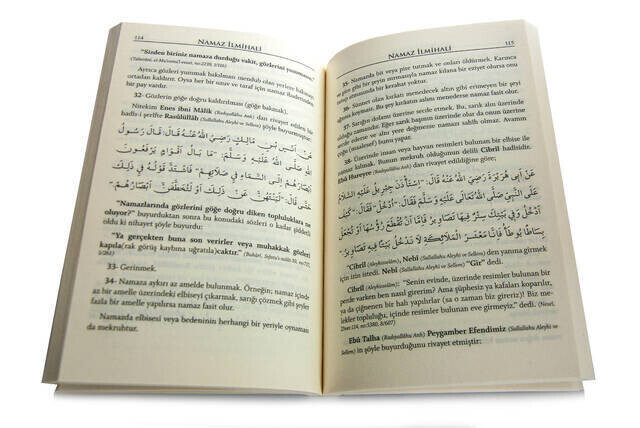 114
NAMAZ İLMİHALİ
"Sizden biriniz namaza durduğu vakit, gözlerini yummasın."
(Taberânî, el-Mu'cemu'l-evsat, no:2239, 3/108)
Ayrıca gözleri yummak bakılması mendub olan yerlere bakmayı
ortadan kaldırır. Oysa her bir uzuv ve taraf için namaz ibadetinden
bir pay vardır.
32- Gözlerin göğe doğru kaldırılması (göğe bakmak).
Nitekim Enes ibni Mâlik (Radıyallâhu Anh) dan rivayet edilen bir
hadîs-i şerifte Rasûlüllâh (Sallallâhu Aleyhi ve Sellem) şöyle buyurmuştur:
عَنْ أَنَسِ بْنِ مَالِكٍ رَضِيَ اللهُ عَنْهُ قَالَ: قَالَ رَسُولُ
اللهِ صَلَّى اللهُ عَلَيْهِ وَسَلَّمَ: "مَا بَالُ أَقْوَامٍ يَرْفَعُونَ
أَبْصَارَهُمْ إِلَى السَّمَاءِ فِي صَلَاتِهِمْ" فَاشْتَدَّ قَوْلُهُ فِي ذٰلِكَ
حَتَّى قَالَ: "لَيَنْتَهُنَّ عَنْ ذٰلِكَ أَوْ لَتُخْطَفَنَّ أَبْصَارُهُمْ."
"Namazlarında gözlerini göğe doğru diken topluluklara ne
oluyor?" buyurduktan sonra bu konudaki sözleri o kadar şiddetli
oldu ki nihayet şöyle buyurdu:
"Ya gerçekten buna son verirler veya muhakkak gözleri
kapıla(rak görüş kaybına uğratıla)caktır." (Buhârî, Sıfatu's-salât:10, no:717,
1/261)
33- Gerinmek.
34- Namaza aykırı az amelde bulunmak. Örneğin; namaz içinde
az bir amelle üzerindeki elbiseyi çıkarmak, sarığı çözmek gibi şeyler
fazla bir amelle yapılırsa namaz fasit olur.
Namazda elbisesi veya bedeninin herhangi bir yeriyle oynamak
da mekruhtur.
NAMAZ İLMİHALİ
115
35- Namazda bir veya pire tutmak ve onları öldürmek. Karınca
ve pire gibi bir şeyin ısırmasıyla namaz kılana bir eziyet olursa onu
almakta bir kerahat yoktur.
36- Sünnet olan kıraati menedecek altın gibi bir şeyi
ağzına koymak. Bu şey kıraatin aslını menederse namaz fasit olur.
37- Sarığın dolamı üzerine secde etmek. Bu, sarık alın üzerinde
olduğu zamandır. Eğer sarık başının üzerinde olur da onun üzerinde
secde ederse ve alnı yere değmezse namazı sahih olmaz. Avamın
çoğu (maalesef) bunu yapar.
38- Üzerinde insan veya hayvan resimleri bulunan bir elbise ile
namaz kılmak. Bunun mekruh olduğunun delili Cibrîl hadîsidir.
Ebû Hureyre (Radıyallâhu Anh) dan rivayet edildiğine göre;
عَنْ أَبِي هُرَيْرَةَ رَضِيَ اللهُ عَنْهُ قَالَ: "اسْتَأْذَنَ جِبْرِيلُ عَلَيْهِ السَّلَامُ
عَلَى النَّبِيِّ صَلَّى اللهُ تَعَالَى عَلَيْهِ وَسَلَّمَ فَقَالَ: "أُدْخُلْ" فَقَالَ: "كَيْفَ
أَدْخُلُ وَفِي بَيْتِكَ سِتْرٌ فِيهَا تَصَاوِيرُ فَإِمَّا أَنْ تُقْطَعَ رُؤُوسُهَا أَوْ تُجْعَلَ
بِسَاطًا يُوطَأُ فَإِنَّا مَعْشَرَ الْمَلَائِكَةِ لَا نَدْخُلُ بَيْتًا فِيهِ تَصَاوِيرُ."
"Cibrîl (Aleyhisselâm), Nebî (Sallallâhu Aleyhi ve Sellem) den yanına girmek
için izin istedi. Nebî (Sallallâhu Aleyhi ve Sellem) "Gir" dedi.
Cibrîl (Aleyhisselâm): "Senin evinde, üzerinde resimler bulunan bir
perde varken ben nasıl gireyim? Ama şüphesiz ya kafaları koparılır,
ya da çiğnenen bir halı yapılırlar (sa o zaman biz gireriz)! Biz me-
lekler topluluğu, içinde resimler bulunan eve girmeyiz." dedi. (Nesâî,
Zînet:114, no:5380, 8/607)
Ebû Talha (Radıyallâhu Anh) Peygamber Efendimiz (Sallallahu Aleyhi ve
Sellem) in şöyle buyurduğunu rivayet etmiştir: